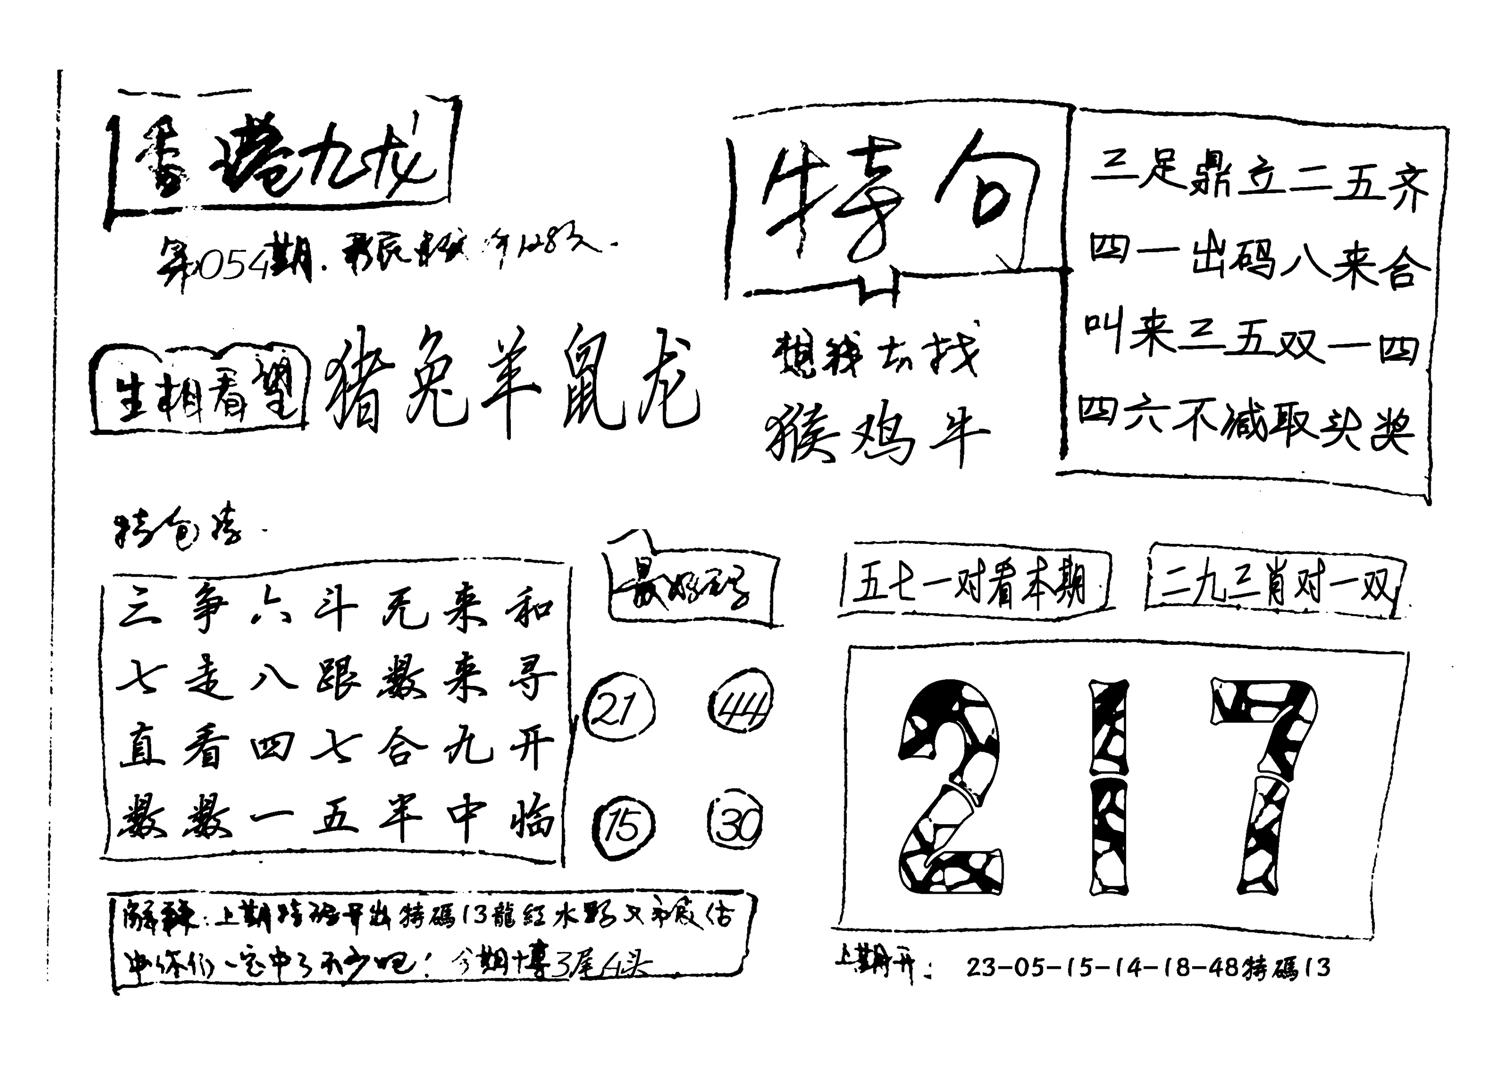 香港九龙
第054期.
生相看望
猪兔羊鼠龙
特句
想我去找
猴鸡牛
三足鼎立二五齐
四一出码八来合
叫来三五双一四
四六不减取头奖
特包
三争六斗无来和
七走八跟数来寻
直看四七合九开
数数一五牢中临
最好码
21 44
15 30
五七一对看本期
二九三肖对一双
217
解释:上期特码开出特碼13龍紅水
你们一定中了不少吧!今期博3尾4头
上期开: 23-05-15-14-18-48特碼13